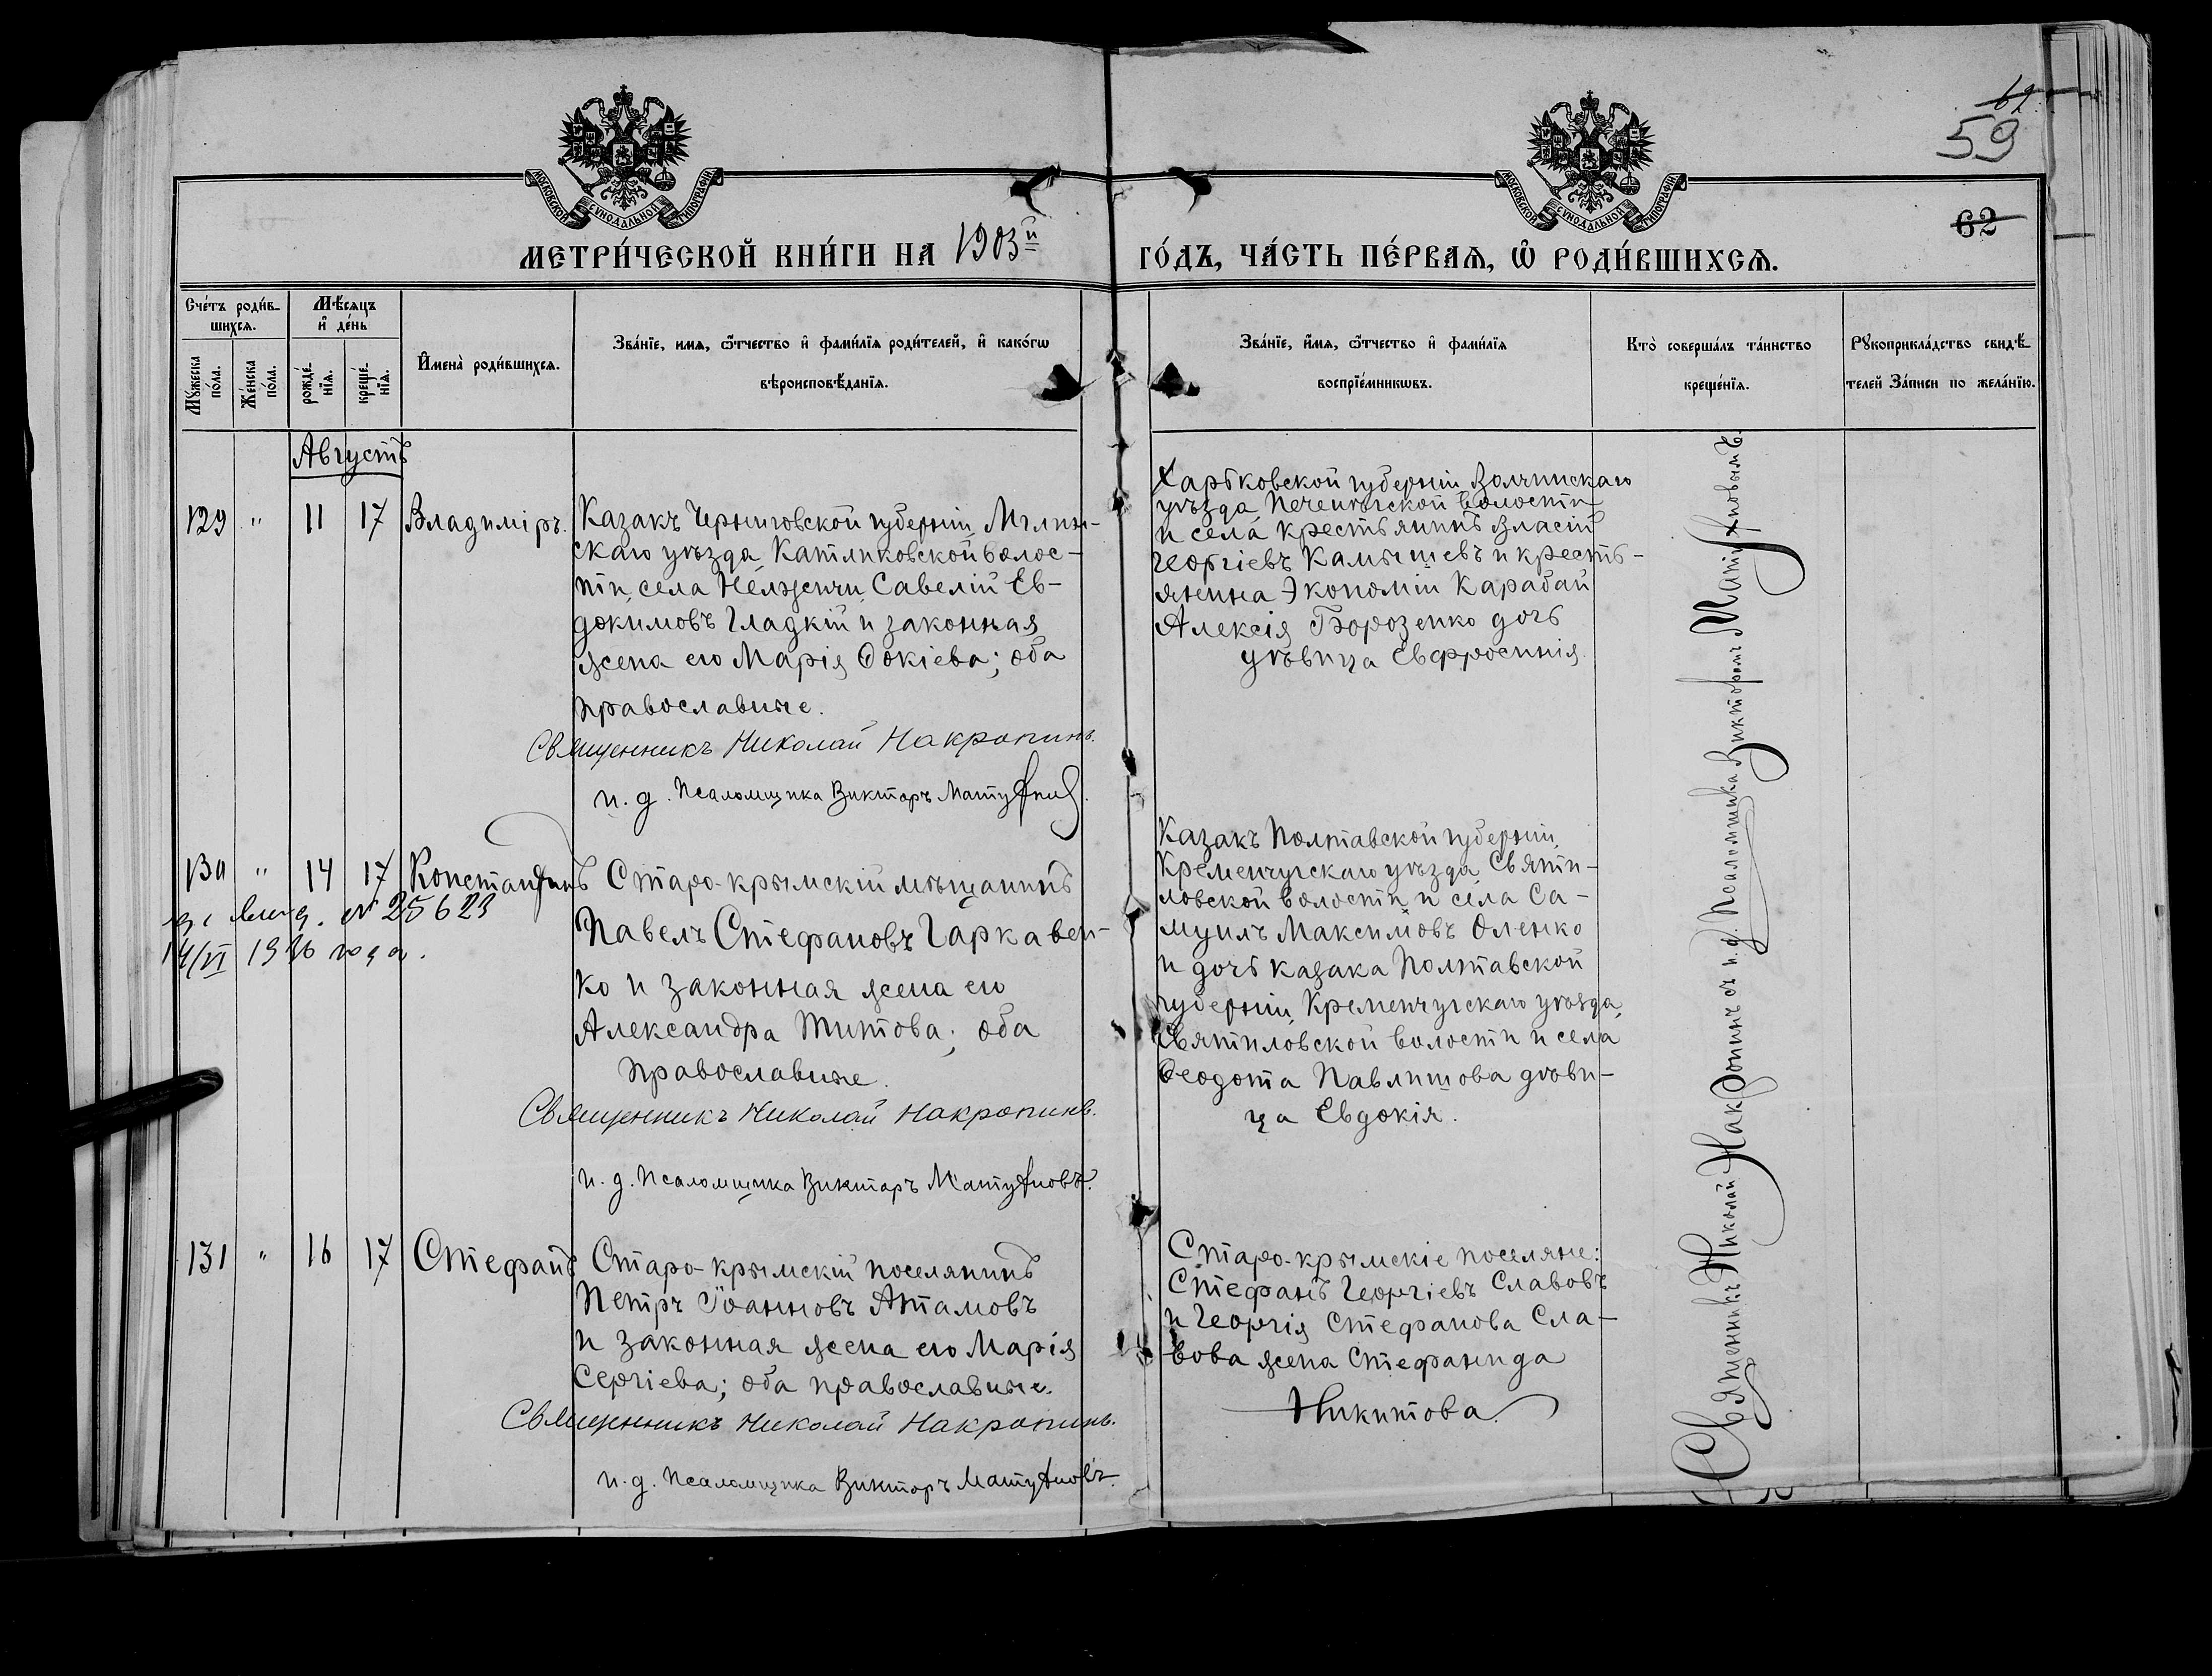 61
59
62
МОСКОВСКОЙ СѴНОДАЛЬНОЙ ТИПОГРАФІИ
МОСКОВСКОЙ СѴНОДАЛЬНОЙ ТИПОГРАФІИ
МЕТРИ́ЧЕСКОЙ КНИ́ГИ НА 1903й
ГО́ДЪ, ЧА́СТЬ ПЕ́РВАѦ, Ѡ҆ РОДИ́ВШИХСѦ.
Сче́тъ роди́в-
шихсѧ.
Мꙋ́жеска по́ла.
Же́нска по́ла.
Мѣ́сѧцъ и҆ де́нь
рожде́-нїѧ.
креще́-нїѧ.
И҆мена̀ роди́вшихсѧ.
Зва́нїе, имѧ, ѻ҆́тчество и҆ фами́лїѧ роди́телей, и҆ како́гѡ
вѣроисповѣ́данїѧ.
Зва́нїе, и҆́мѧ, ѻ҆́тчество и҆ фами́лїѧ
воспрїе́мникѡвъ.
Кто̀ соверша́лъ та́инство
креще́нїѧ.
Рꙋкоприкла́дство свидѣ́-
телей За́писи по жела́нїю.
Августъ
129 " 11 17 Владиміръ.
Казакъ Черниговской губерніи, Мглин-
скаго уѣзда, Катликовской волос-
ти, села Нелжичи, Савелій Ев-
докимовъ Гладкій и законная
жена его Марія Фокіева; оба
православные.
Священникъ Николай Накропинъ.
и. д. Псаломщика Викторъ Матухновъ.
Харьковской губерніи Волчинскаго
уѣзда Печенѣгской волости
и села́ крестьянинъ Власій
Георгіевъ Камышевъ и кресть-
янина Экономіи Карабай
Алексія Борозенко дочь
дѣвица Евфросинія.
130 " 14 17 Константинъ
№ 25623
14/VI 1926 года.
Старо-крымскій мѣщанинъ
Павелъ Стефановъ Гаркавен-
ко и законная жена его
Александра Титова; оба
православные.
Священникъ Николай Накропинъ.
и. д. Псаломщика Викторъ Матухновъ.
Казакъ Полтавской губерніи,
Кременчугскаго уѣзда, Святи-
ловской волости и села Са-
муилъ Максимовъ Оленко
и дочь казака Полтавской
губерніи, Кременчугскаго уѣзда,
Святиловской волости и села
Ѳеодота Павлишова дѣви-
ца Евдокія.
131 " 16 17 Стефанъ
Старо-крымскій поселянинъ
Петръ Іоанновъ Атамовъ
и законная жена его Марія
Сергіева; оба православные.
Священникъ Николай Накропинъ.
и. д. Псаломщика Викторъ Матухновъ.
Старо-крымскіе поселяне:
Стефанъ Георгіевъ Славовъ
и Георгія Стефанова Сла-
вова жена Стефанида
Никитова.
Священникъ Николай Накропинъ съ и. д. Псаломщика Викторомъ Матухновымъ.